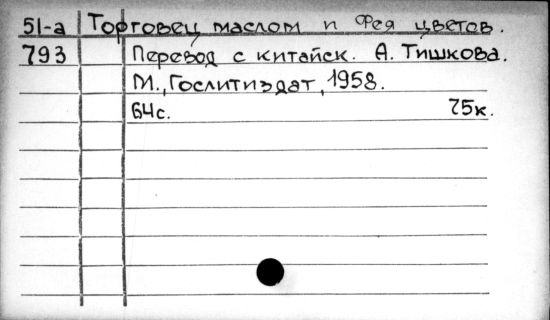 51-а Торговец маслом и Фея цветов.
793 Перевод с китайск. А. Тишкова.
М., Гослитиздат, 1958.
64с. 75к.